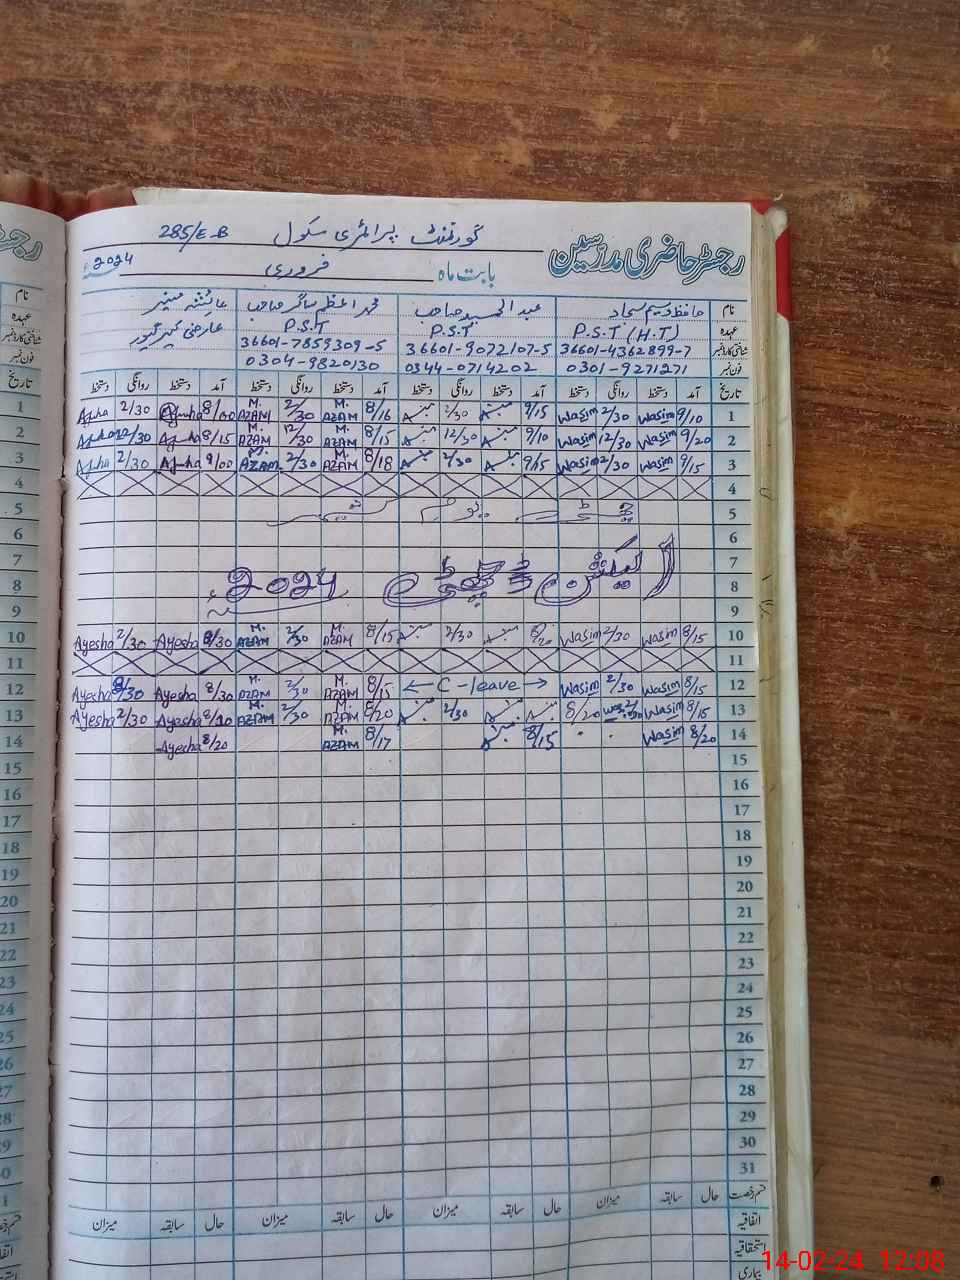 رجسٹر حاضری مدرسین گورنمنٹ پرائمری سکول 285/E-B
بابت ماہ فروری 2024ء
نام حافظ وسیم سجاد عبدالحمید صاحب محمد اعظم ساگر صاحب عائشہ منیر
عہدہ P.S.T (H.T) P.S.T P.S.T عارضی کیئر گیور
شناختی کارڈ نمبر 36601-4362899-7 36601-9072107-5 36601-7859309-5
فون نمبر 0301-9271271 0344-0714202 0304-9820130
تاریخ آمد دستخط روانگی دستخط آمد دستخط روانگی دستخط آمد دستخط روانگی دستخط آمد دستخط روانگی دستخط
1 9/10 Wasim 2/30 Wasim 9/15 2/30 8/16 M. AZAM 2/30 M. AZAM 8/00 2/30 1
2 9/20 Wasim 12/30 Wasim 9/10 12/30 8/15 M. AZAM 12/30 M. AZAM 8/15 12/30 2
3 9/15 Wasim 2/30 Wasim 9/15 2/30 8/18 M. AZAM 2/30 M. AZAM 9/00 2/30 3
4 4
5 5
6 6
7 الیکشن ڈیوٹی 2024ء 7
8 8
9 9
10 8/15 Wasim 2/20 Wasim 8/20 2/30 8/15 M. AZAM 2/30 M. AZAM 8/30 Ayesha 2/30 Ayesha 10
11 11
12 8/15 Wasim 2/30 Wasim C-leave 8/15 M. AZAM 2/30 M. AZAM 8/30 Ayesha Ayesha 12
13 8/15 Wasim 8/20 2/30 8/20 M. AZAM 2/30 M. AZAM Ayesha 2/30 Ayesha 13
14 8/20 Wasim 8/15 8/17 M. AZAM 8/20 Ayesha 14
15 15
16 16
17 17
18 18
19 19
20 20
21 21
22 22
23 23
24 24
25 25
26 26
27 27
28 28
29 29
30 30
31
قسم رخصت حال سابقہ میزان حال سابقہ میزان حال سابقہ میزان حال سابقہ میزان
اتفاقیہ
استحقاقیہ
بیماری
14-02-24 12:08